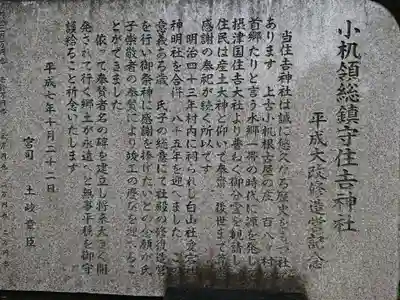 小机領総鎮守住吉神社
平成大改修造営記念
当住吉神社は誠に悠久なる歴史を
あります 上古小机根古屋の庄 百八ヶ村
首郷たりと言う水郷一帯の時代に源を発し
摂津国住吉大社より御分霊を観請し
住民は産土大神と仰いで奉斎 後世まで
感謝の奉祀が続く所以です
明治四十三年村内に祀られし白山社愛宕社
神明社を合祀 八十五年を迎へました
意義ある歳 氏子の総意にて社殿の修復造営
を行い御祭神に感謝を捧げたいとの念願が氏
子崇敬者の奉賛により竣工の慶びを迎へるこ
とができました
依って奉賛者名の碑を建立し将来大きく開
発されて行く郷土が永遠へと無事平穏を御守
護給ること祈念いたします
平成七年十月二十二日
宮司 土岐章臣